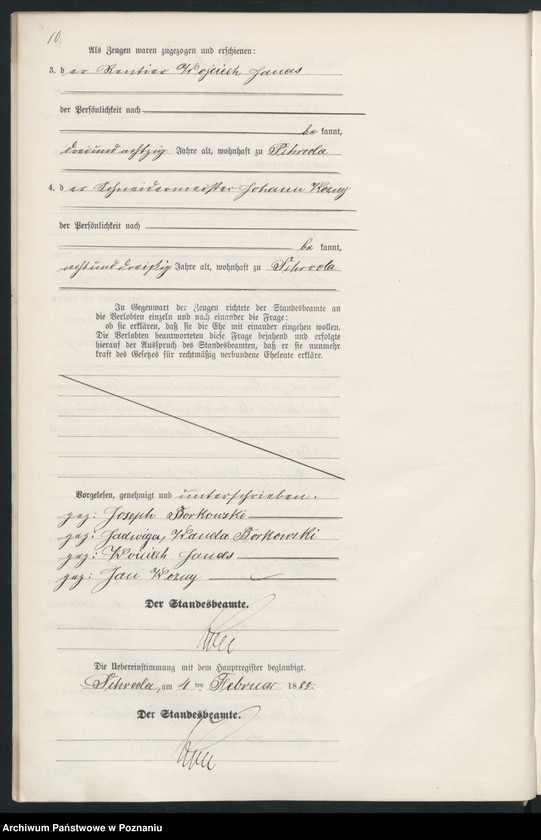 10
Als Zeugen waren zugezogen und erschienen:
3. der Rentier Wojciech Janas
der Persönlichkeit nach
bekannt,
dreiundachtzig Jahre alt, wohnhaft zu Schroda
4. der Schneidermeister Johann Wozny
der Persönlichkeit nach
bekannt,
achtunddreißig Jahre alt, wohnhaft zu Schroda
In Gegenwart der Zeugen richtete der Standesbeamte an
die Verlobten einzeln und nach einander die Frage:
ob sie erklären, daß sie die Ehe mit einander eingehen wollen.
Die Verlobten beantworteten diese Frage bejahend und erfolgte
hierauf der Ausspruch des Standesbeamten, daß er sie nunmehr
kraft des Gesetzes für rechtmäßig verbundene Eheleute erkläre.
Vorgelesen, genehmigt und unterschrieben.
gez: Joseph Borkowski
gez: Jadwiga, Wanda Borkowski
gez: Wojciech Janas
gez: Jan Wozny
Der Standesbeamte.
Die Uebereinstimmung mit dem Hauptregister beglaubigt.
Schroda, am 4 ten Februar 188
Der Standesbeamte.
Archiwum Państwowe w Poznaniu